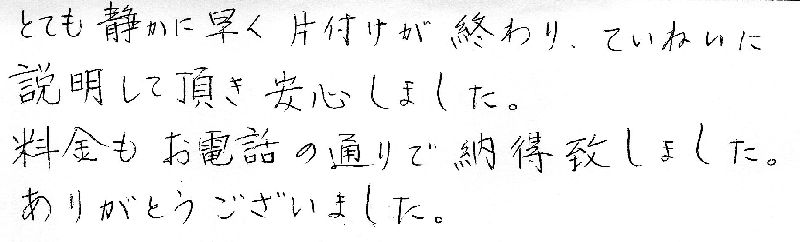 とても静かに早く片付けが終わり、ていねいに
説明して頂き安心しました。
料金もお電話の通りで納得致しました。
ありがとうございました。